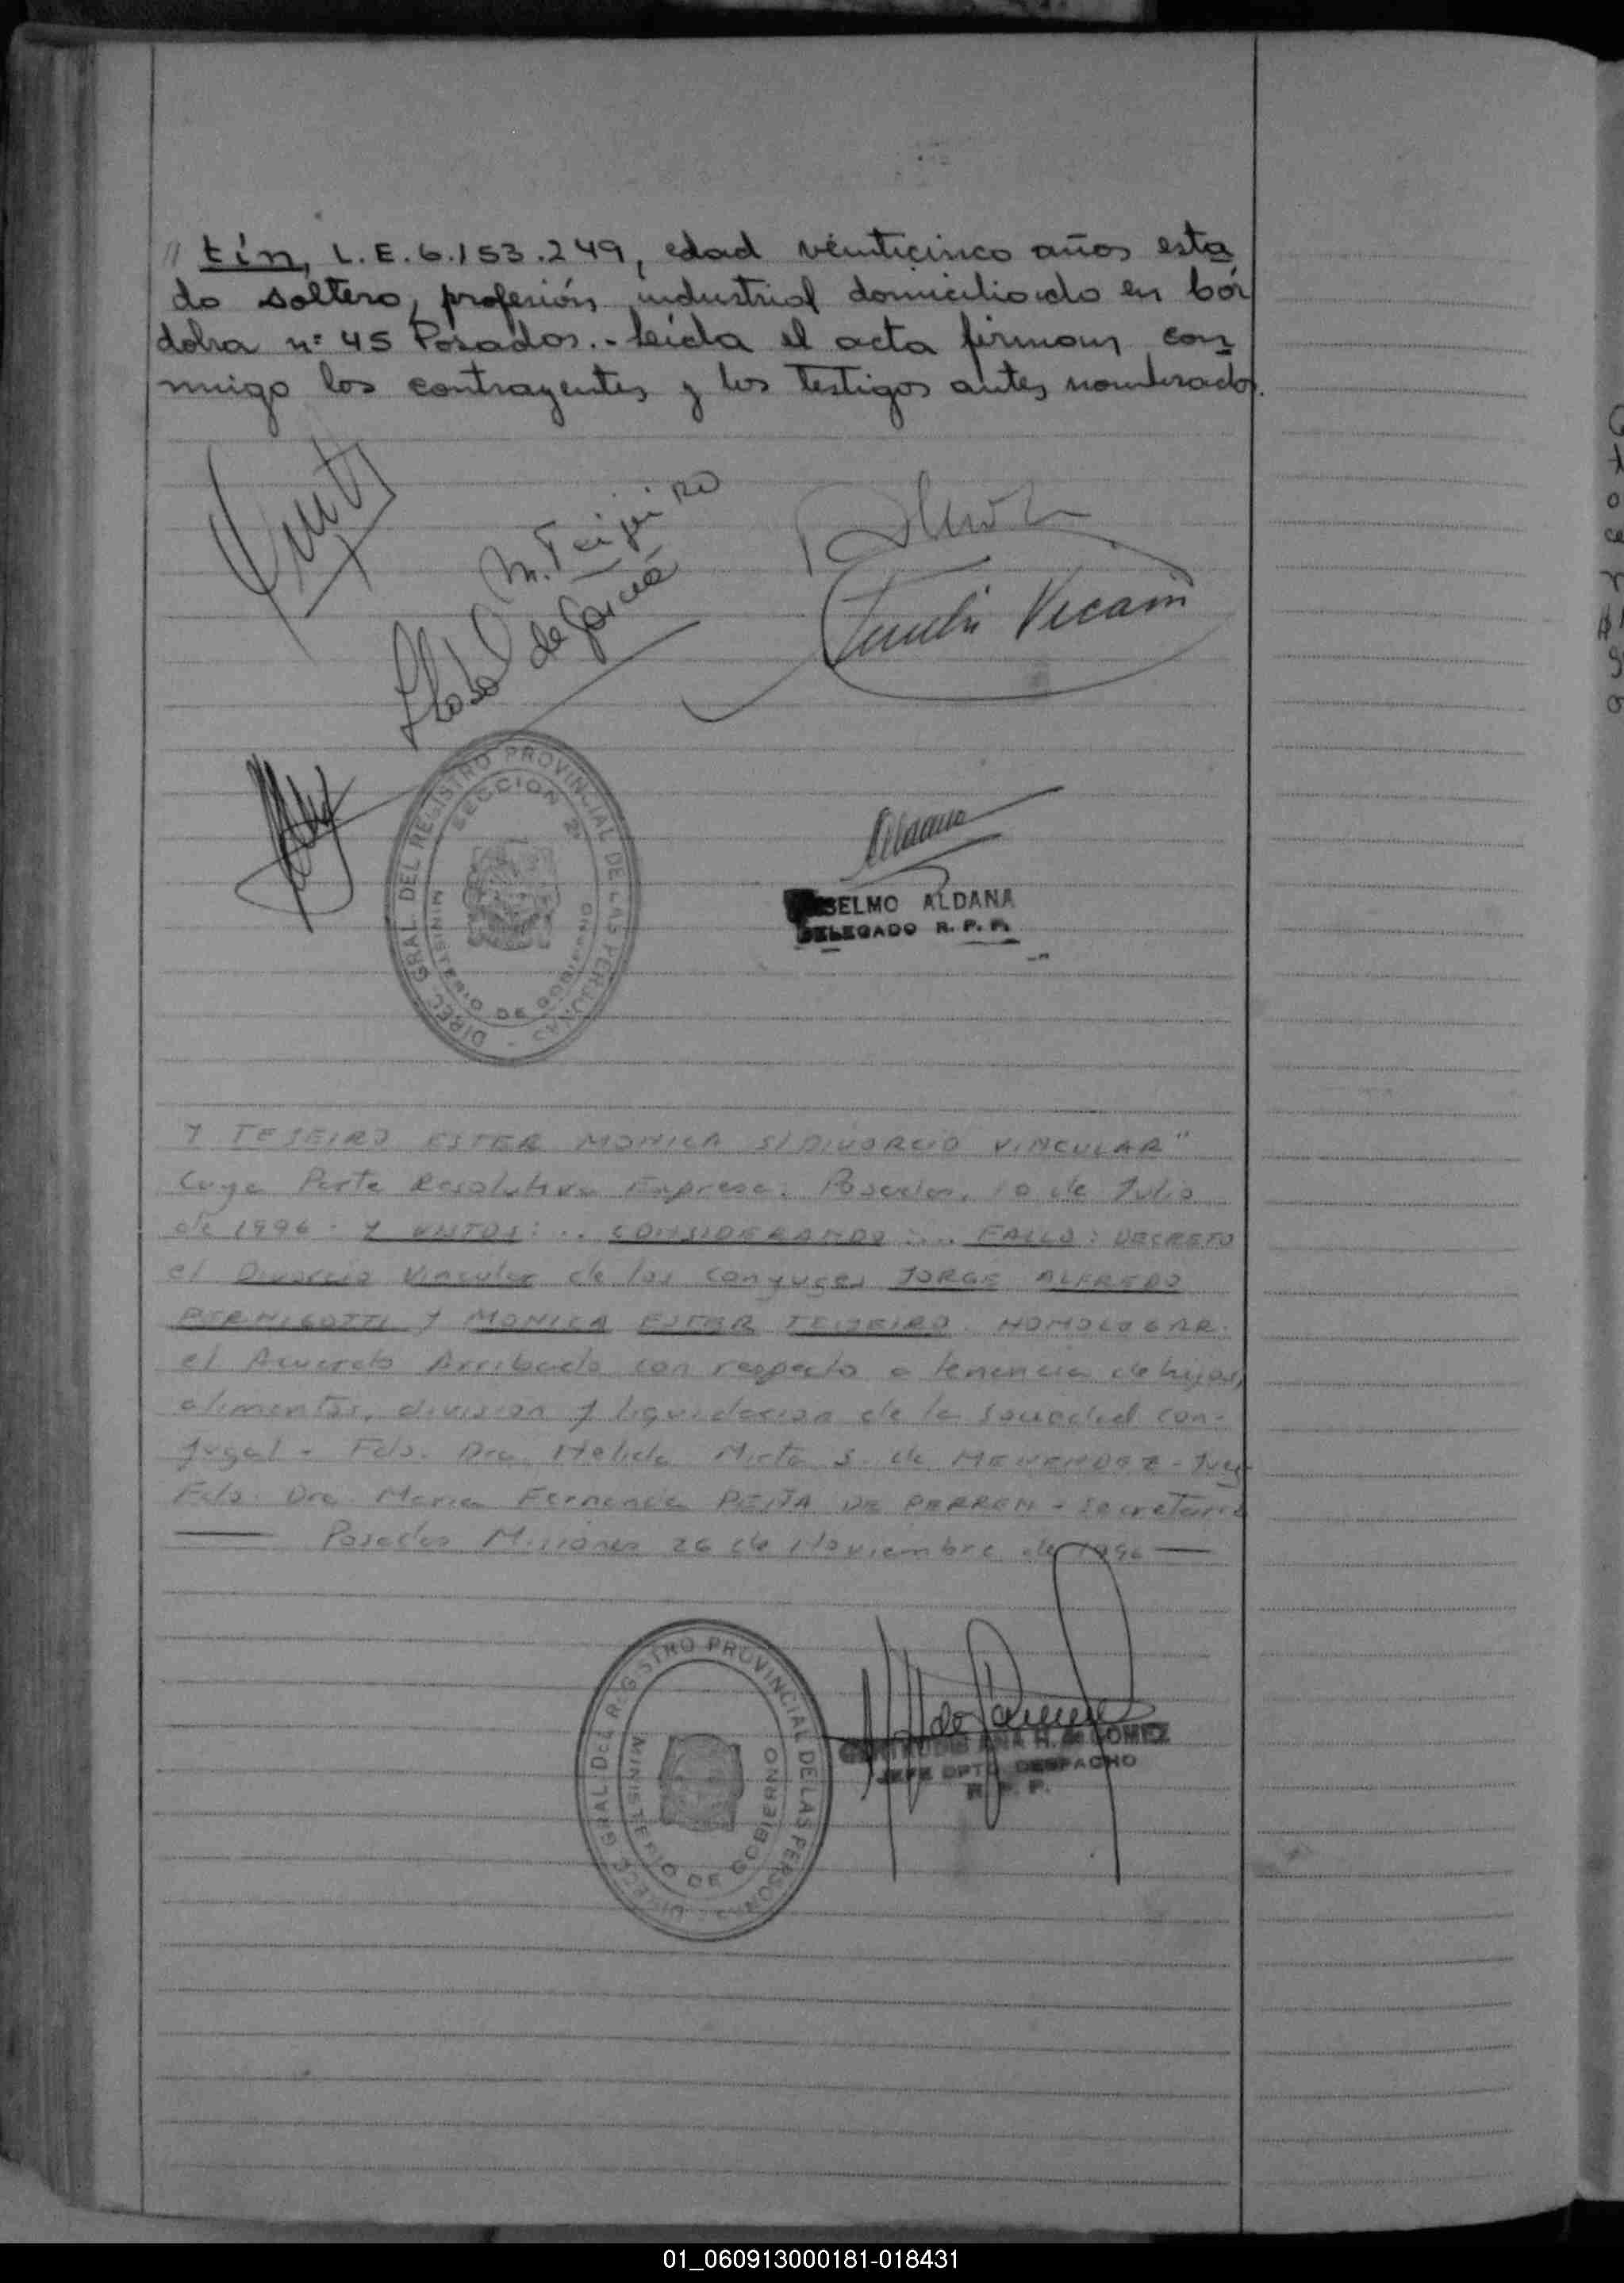 // tín, L.E. 6.153.249, edad veinticinco años esta
do soltero, profesión industrial domiciliado en Cór
doba nº 45 Posadas.- Leída el acta firman con
migo los contrayentes y los testigos antes nombrados.
M. Teijeiro
de García
DIREC. GRAL. DEL REGISTRO PROVINCIAL DE LAS PERSONAS
SECCION 2ª
MINISTERIO DE GOBIERNO
ANSELMO ALDANA
DELEGADO R. P. P.
Y TEJEIRO ESTER MONICA S/DIVORCIO VINCULAR"
Cuya Parte Resolutiva Expresa: Posadas, 10 de Julio
de 1996 - Y VISTOS: .. CONSIDERANDO: .. FALLO: DECRETO
el Divorcio Vincular de los Conyuges JORGE ALFREDO
PERNIGOTTI Y MONICA ESTER TEIJEIRO. HOMOLOGAR
el Acuerdo Arribado con respecto a tenencia de hijos,
alimentos, division y liquidacion de la Sociedad con-
yugal - Fdo. Dra. Mirta S. de MENENDEZ - Juez
Fdo. Dra. Maria Fernanda DE PERREM - Secretaria
Posadas Misiones 26 de Noviembre de 1996
DIREC. GRAL. DEL REGISTRO PROVINCIAL DE LAS PERSONAS
MINISTERIO DE GOBIERNO
ANA H. de GOMEZ
JEFE DPTO. DESPACHO
R. P. P.
01_060913000181-018431